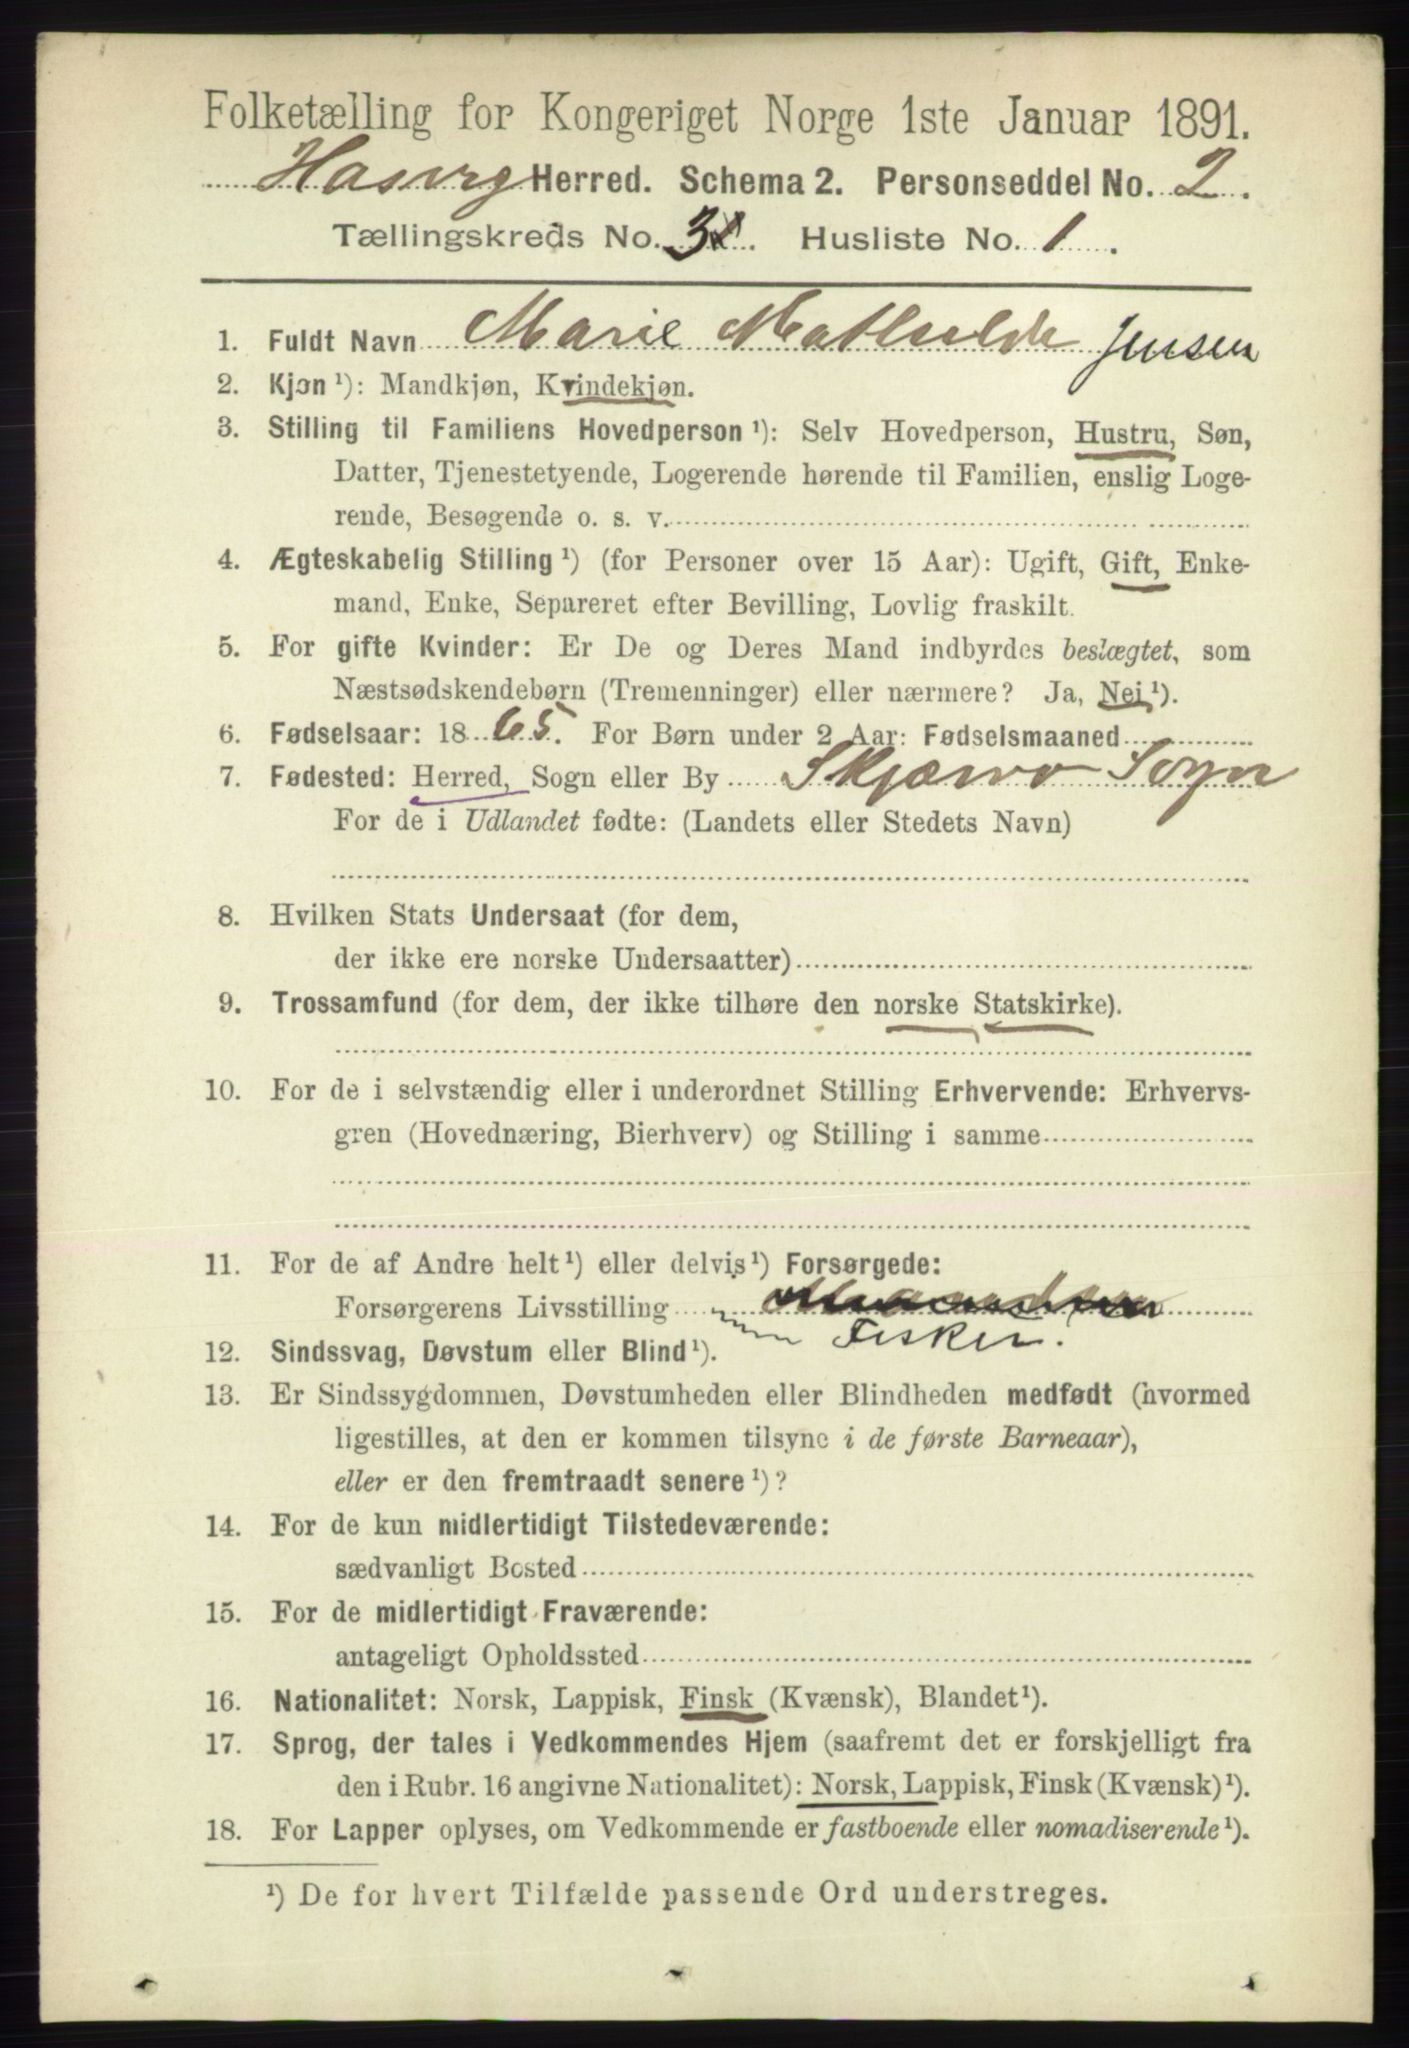 Folketælling for Kongeriget Norge 1ste Januar 1891.
Hasvig Herred. Schema 2. Personseddel No. 2.
Tællingskreds No. 3. Husliste No. 1.
1. Fuldt Navn Marie Mathilde Jensen
2. Kjøn ¹): Mandkjøn, Kvindekjøn.
3. Stilling til Familiens Hovedperson ¹): Selv Hovedperson, Hustru, Søn,
Datter, Tjenestetyende, Logerende hørende til Familien, enslig Loge-
rende, Besøgende o. s. v.
4. Ægteskabelig Stilling ¹) (for Personer over 15 Aar): Ugift, Gift, Enke-
mand, Enke, Separeret efter Bevilling, Lovlig fraskilt.
5. For gifte Kvinder: Er De og Deres Mand indbyrdes beslægtet, som
Næstsødskendebørn (Tremenninger) eller nærmere? Ja, Nei ¹).
6. Fødselsaar: 1865. For Børn under 2 Aar: Fødselsmaaned
7. Fødested: Herred, Sogn eller By Skjærvø Sogn
For de i Udlandet fødte: (Landets eller Stedets Navn)
8. Hvilken Stats Undersaat (for dem,
der ikke ere norske Undersaatter)
9. Trossamfund (for dem, der ikke tilhøre den norske Statskirke).
10. For de i selvstændig eller i underordnet Stilling Erhvervende: Erhvervs-
gren (Hovednæring, Bierhverv) og Stilling i samme
11. For de af Andre helt ¹) eller delvis ¹) Forsørgede:
Forsørgerens Livsstilling
Fisker.
12. Sindssvag, Døvstum eller Blind ¹).
13. Er Sindssygdommen, Døvstumheden eller Blindheden medfødt (hvormed
ligestilles, at den er kommen tilsyne i de første Barneaar),
eller er den fremtraadt senere ¹)?
14. For de kun midlertidigt Tilstedeværende:
sædvanligt Bosted
15. For de midlertidigt Fraværende:
antageligt Opholdssted
16. Nationalitet: Norsk, Lappisk, Finsk (Kvænsk), Blandet ¹).
17. Sprog, der tales i Vedkommendes Hjem (saafremt det er forskjelligt fra
den i Rubr. 16 angivne Nationalitet): Norsk, Lappisk, Finsk (Kvænsk) ¹).
18. For Lapper oplyses, om Vedkommende er fastboende eller nomadiserende ¹).
¹) De for hvert Tilfælde passende Ord understreges.